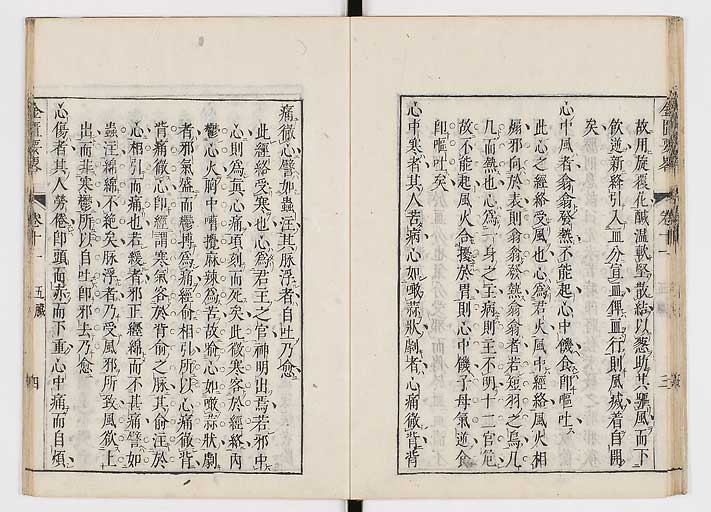 故用旋覆花鹹溫軟堅散結以葱助其驅風而下
飲逆新絳引入血分宜血俾血行則風滅着自開
矣
心中風者翕翕發熱不能起心中饑食即嘔吐
此心之經絡受風也心為君火風中經絡風火相
煽邪向於表則翕翕發熱翕翕者若短羽之鳥凡
几而熱也心為一身之主病則主不明十二官危
故不能起風火合擾於胃則心中饑子母氣逆食
即嘔吐矣
心中寒者其人苦病心如噉蒜狀劇者心痛徹背背
金匱要畧
卷十一
三
痛徹心譬如蟲注其脉浮者自吐乃愈
此經絡受寒也心為君主之官神明出焉若邪中
心則為真心痛頃刻而死矣此微寒客於經絡內
鬱心火胸中嘈攪麻辣為苦故猶心如噉蒜狀劇
者邪氣盛而鬱摶為痛經俞相引所以心痛徹背
背痛徹心即經謂寒氣客於背俞之脉其俞注於
心相引而痛也若緩者邪正纏綿而不甚痛譬如
蟲注綿綿不絶矣脉浮者乃受風邪所致風欲上
出而非寒鬱所以自吐即邪去乃愈
心傷者其人勞倦即頭面赤而下重心中痛而自煩
金匱要畧
卷十一
五臟
四